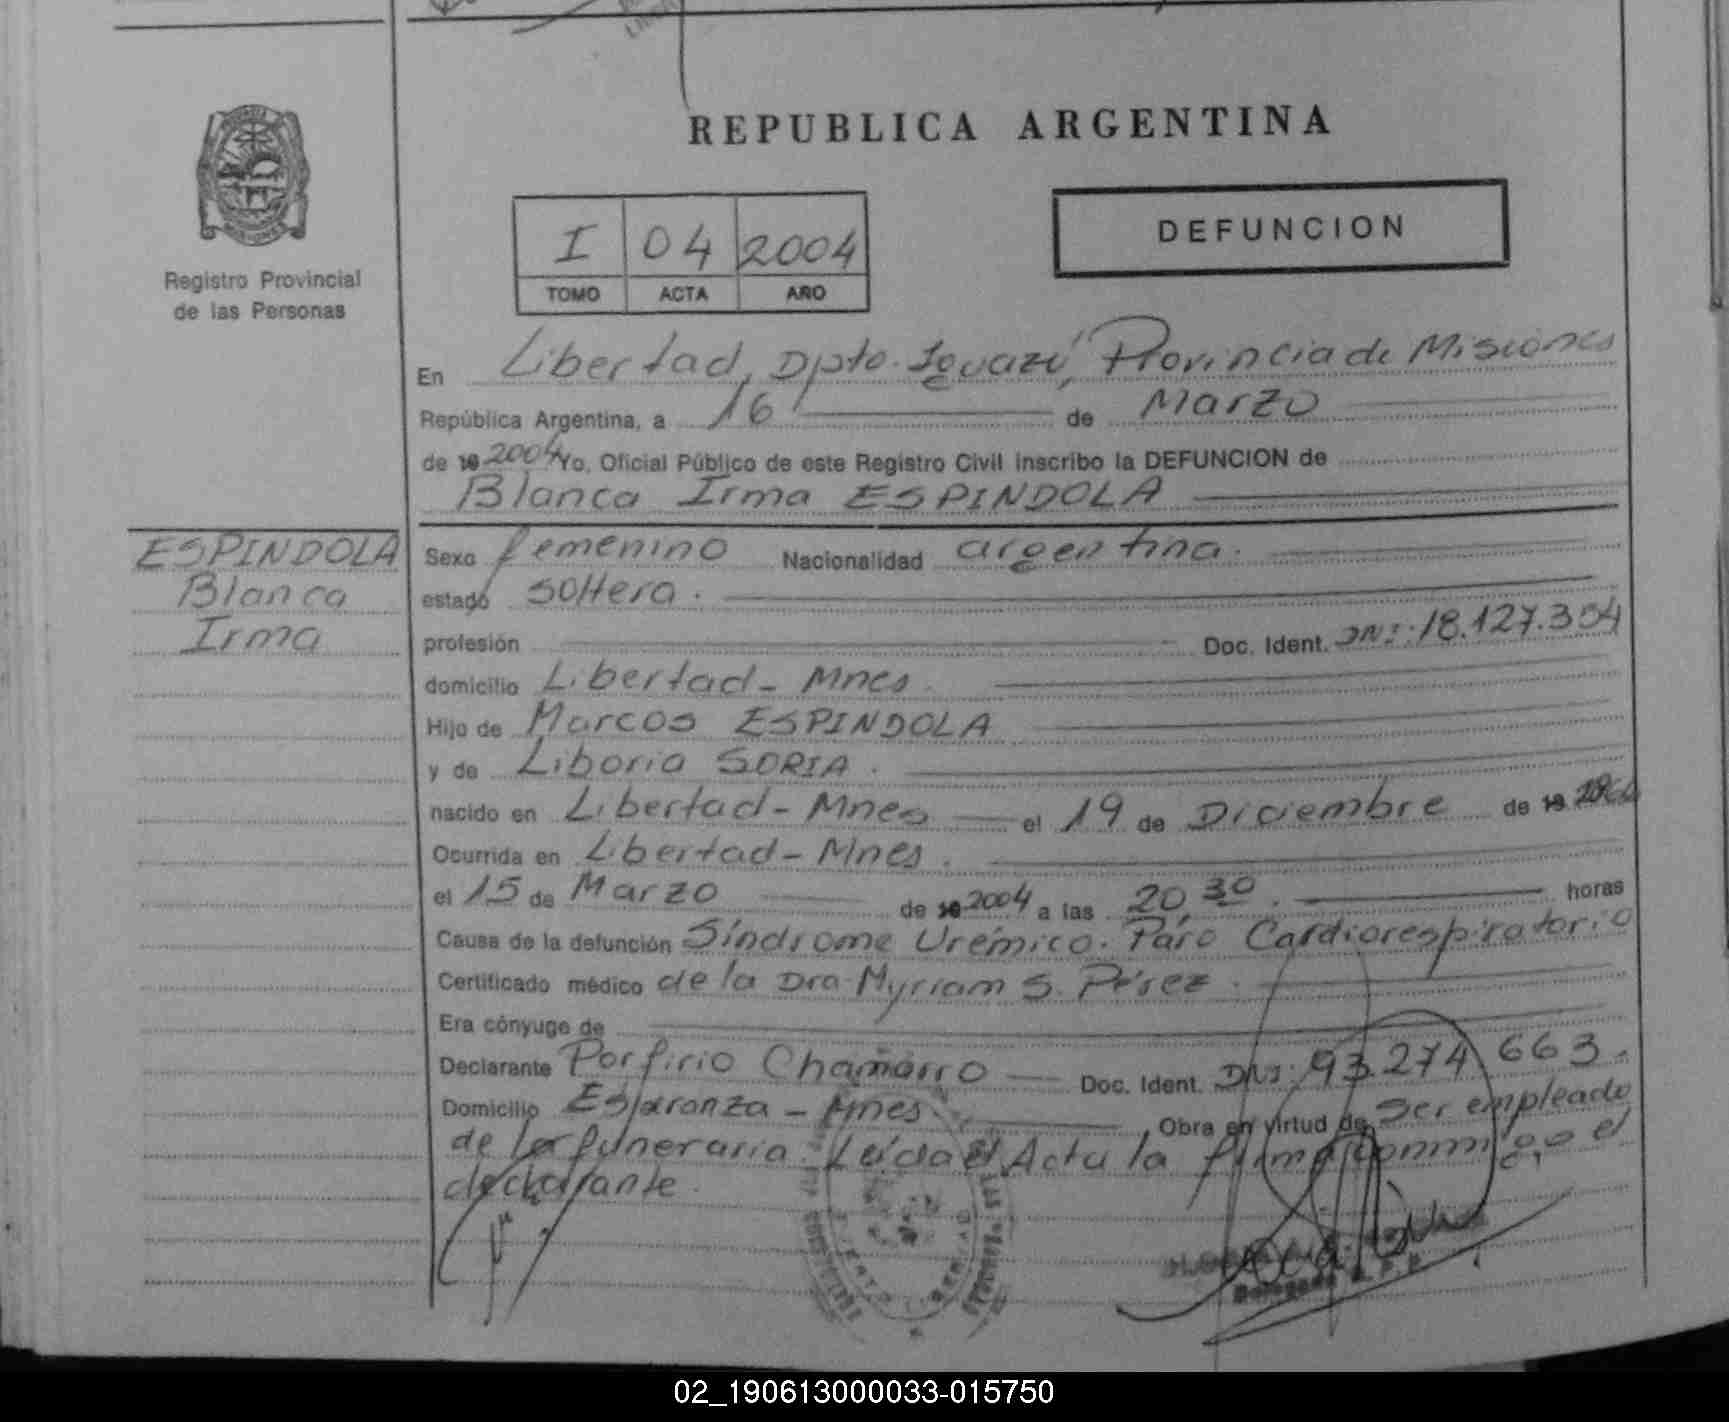 REPUBLICA ARGENTINA
I 04 2004
TOMO ACTA AÑO
DEFUNCION
Registro Provincial
de las Personas
En Libertad, Dpto. Iguazú, Provincia de Misiones
República Argentina, a 16 de Marzo
de 19 2004 Yo, Oficial Público de este Registro Civil inscribo la DEFUNCION de
Blanca Irma ESPINDOLA
ESPINDOLA
Blanca
Irma
Sexo femenino Nacionalidad argentina.
estado soltera.
profesión Doc. Ident. DNI: 18.127.354
domicilio Libertad - Mnes.
Hijo de Marcos ESPINDOLA
y de Liboria SORIA.
nacido en Libertad - Mnes el 19 de Diciembre de 19
Ocurrida en Libertad - Mnes.
el 15 de Marzo de 19 2004 a las 20,30. horas
Causa de la defunción Síndrome Urémico. Paro Cardiorespiratorio
Certificado médico de la Dra. Myriam S. Pérez.
Era cónyuge de
Declarante Porfirio Chamarro Doc. Ident. DNI: 93.274.663.
Domicilio Esperanza - Mnes. Obra en virtud de ser empleado
de la funeraria. Leída el Acta la firma conmigo el
declarante.
02_190613000033-015750